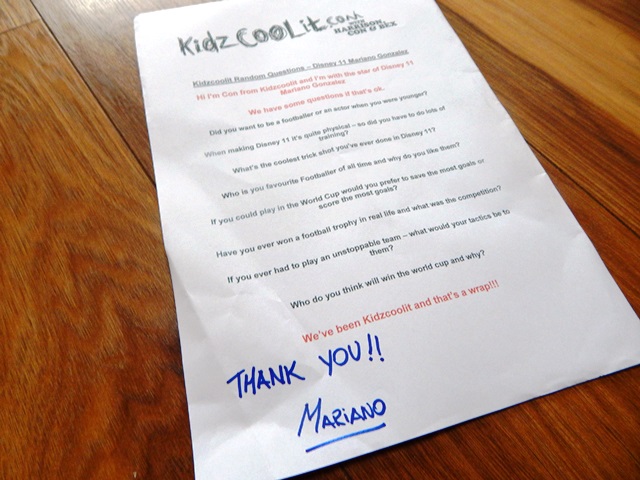 KidzCoolit.com
with
HARRISON,
CON & REX
Kidzcoolit Random Questions – Disney 11 Mariano Gonzalez
Hi I'm Con from Kidzcoolit and I'm with the star of Disney 11
Mariano Gonzalez
We have some questions if that's ok.
Did you want to be a footballer or an actor when you were younger?
When making Disney 11 it's quite physical – so did you have to do lots of
training?
What's the coolest trick shot you've ever done in Disney 11?
Who is you favourite Footballer of all time and why do you like them?
If you could play in the World Cup would you prefer to save the most goals or
score the most goals?
Have you ever won a football trophy in real life and what was the competition?
If you ever had to play an unstoppable team – what would your tactics be to
them?
Who do you think will win the world cup and why?
We've been Kidzcoolit and that's a wrap!!!
THANK YOU!!
MARIANO